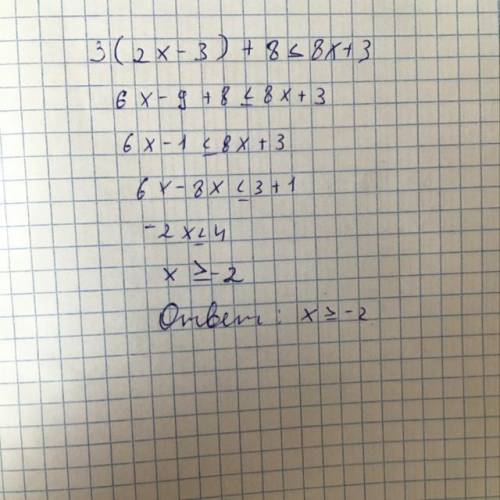 3(2x-3)+8≤8x+3
6x-9+8≤8x+3
6x-1≤8x+3
6x-8x≤3+1
-2x≤4
x≥-2
Ответ: x≥-2